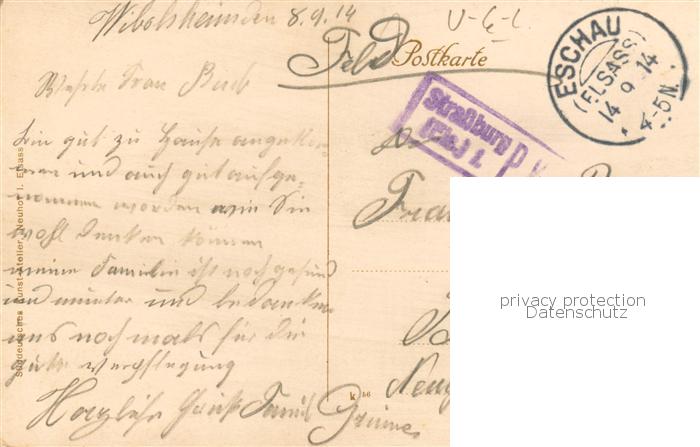 Wibolsheim den 8.9.14
Feld Postkarte
ESCHAU
(ELSASS)
14 9 14
4-5N.
Straßburg
(Els.) 1.
Werte Frau
bin gut zu Hause angekom-
men und auch gut aufge-
nommen worden wie Sie
wohl denken können
meine Familie ist noch gesund
und munter und bedanken
uns nochmals für die
gute Verpflegung
Herzliche Grüße Famil
Frau
Süddeutsches Kunst-Atelier, Neuhof i. Elsass
k 56
privacy protection
Datenschutz